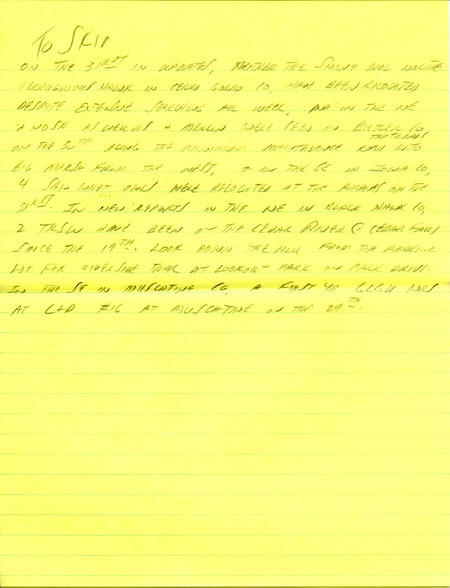 To SKIP
ON THE 31RST IN UPDATES, NEITHER THE SNOWY OWL NOR THE
FERRUGINOUS HAWK IN CERRO GORDO CO, HAVE BEEN RELOCATED
DESPITE EXTENSIVE SEARCHING ALL WEEK, AND IN THE NE
A NOSH AS WELL AS A MERLIN WERE SEEN IN BUTLER CO,
ON THE 30TH ALONG THE MINIMUM MAINTENANCE ROAD INTO
BIG MARSH FROM THE WEST, & IN THE SE IN IOWA CO,
4 OWLS WERE RELOCATED AT THE AMANAS ON THE
31RST. IN NEW REPORTS IN THE NE IN BLACK HAWK CO,
2 TRSW HAVE BEEN ON THE CEDAR RIVER @ CEDAR FALLS
SINCE THE 19TH. LOOK DOWN FROM THE PARKING
LOT FOR RIVERSIDE TRAIL AT LOOKOUT PARK ON PARK DRIVE
IN THE SE IN MUSCATINE CO, A FIRST YR GLGU WAS
AT L+D #16 AT MUSCATINE ON THE 29TH.